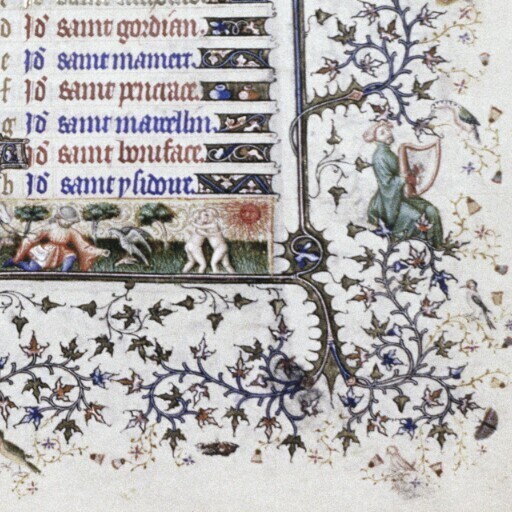 d Id̄ saint gordian.
e Id̄ saint mamert.
f Id̄ saint pancrace.
g Id̄ saint marcellin.
A Id̄ saint boniface.
b Id̄ saint ysidour.